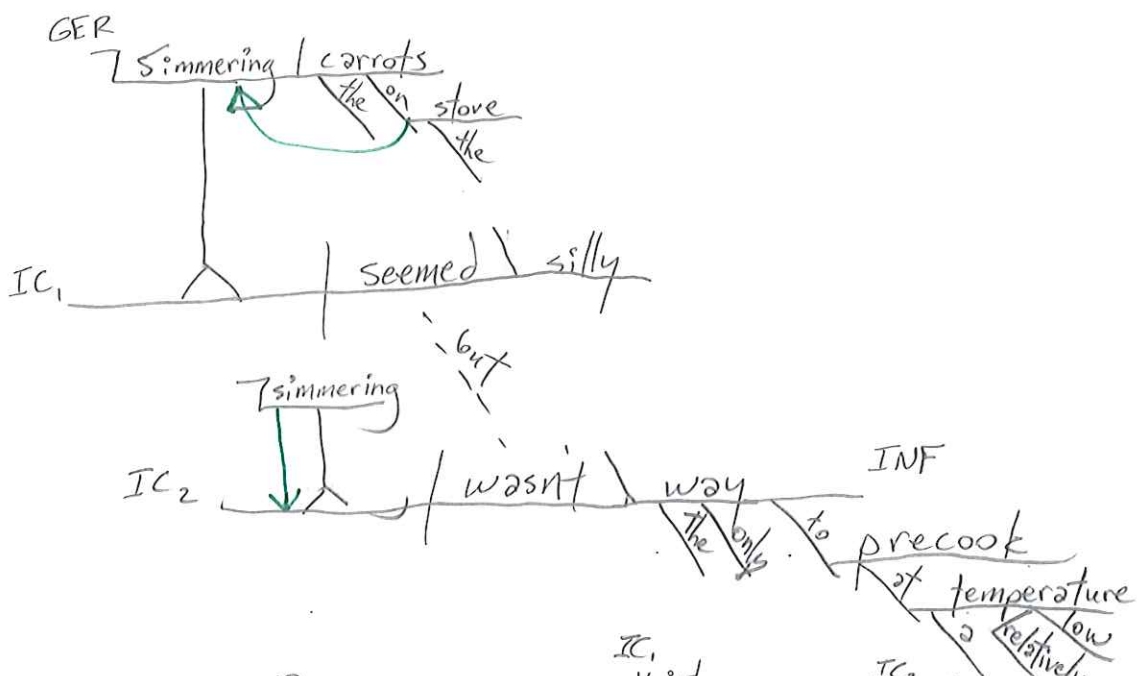 GER
Simmering carrots
the on stove
the
IC₁ seemed silly
but
simmering
IC₂ wasn't way INF
the only to precook
at temperature
a relatively low
IC₁
IC₂